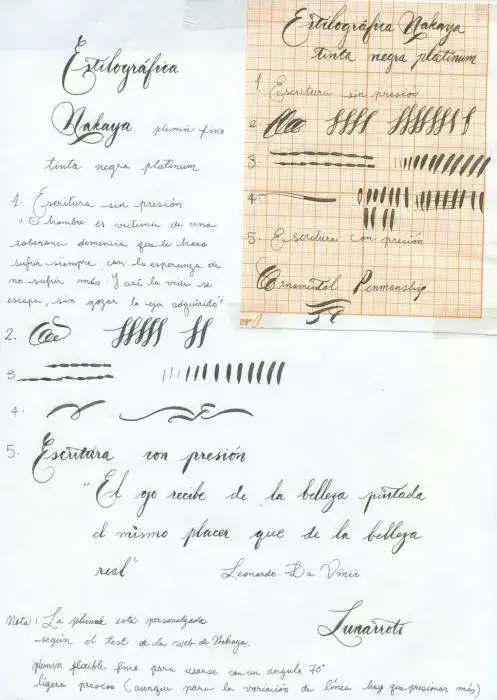 Estilográfica
Nakaya plumín fino
tinta negra platinum
1. Escritura sin presión
"El hombre es victima de una
soberana demencia que le hace
sufrir siempre con la esperanza de
no sufrir más. Y así la vida se
escapa, sin gozar lo ya adquirido"
2.
3
4.
5. Escritura con presión
"El ojo recibe de la belleza pintada
el mismo placer que de la belleza
real" Leonardo Da Vinci
Lunarroti
Nota: La pluma está personalizada
según el test de la web de Nakaya,
plumín flexible fino para usarse con un ángulo 70°
ligera presión (aunque para la variación de línea hay que presionar más)
Estilográfica Nakaya
tinta negra platinum
1. Escritura sin presión
2
3.
4.
5. Escritura con presión
Ornamental Penmanship